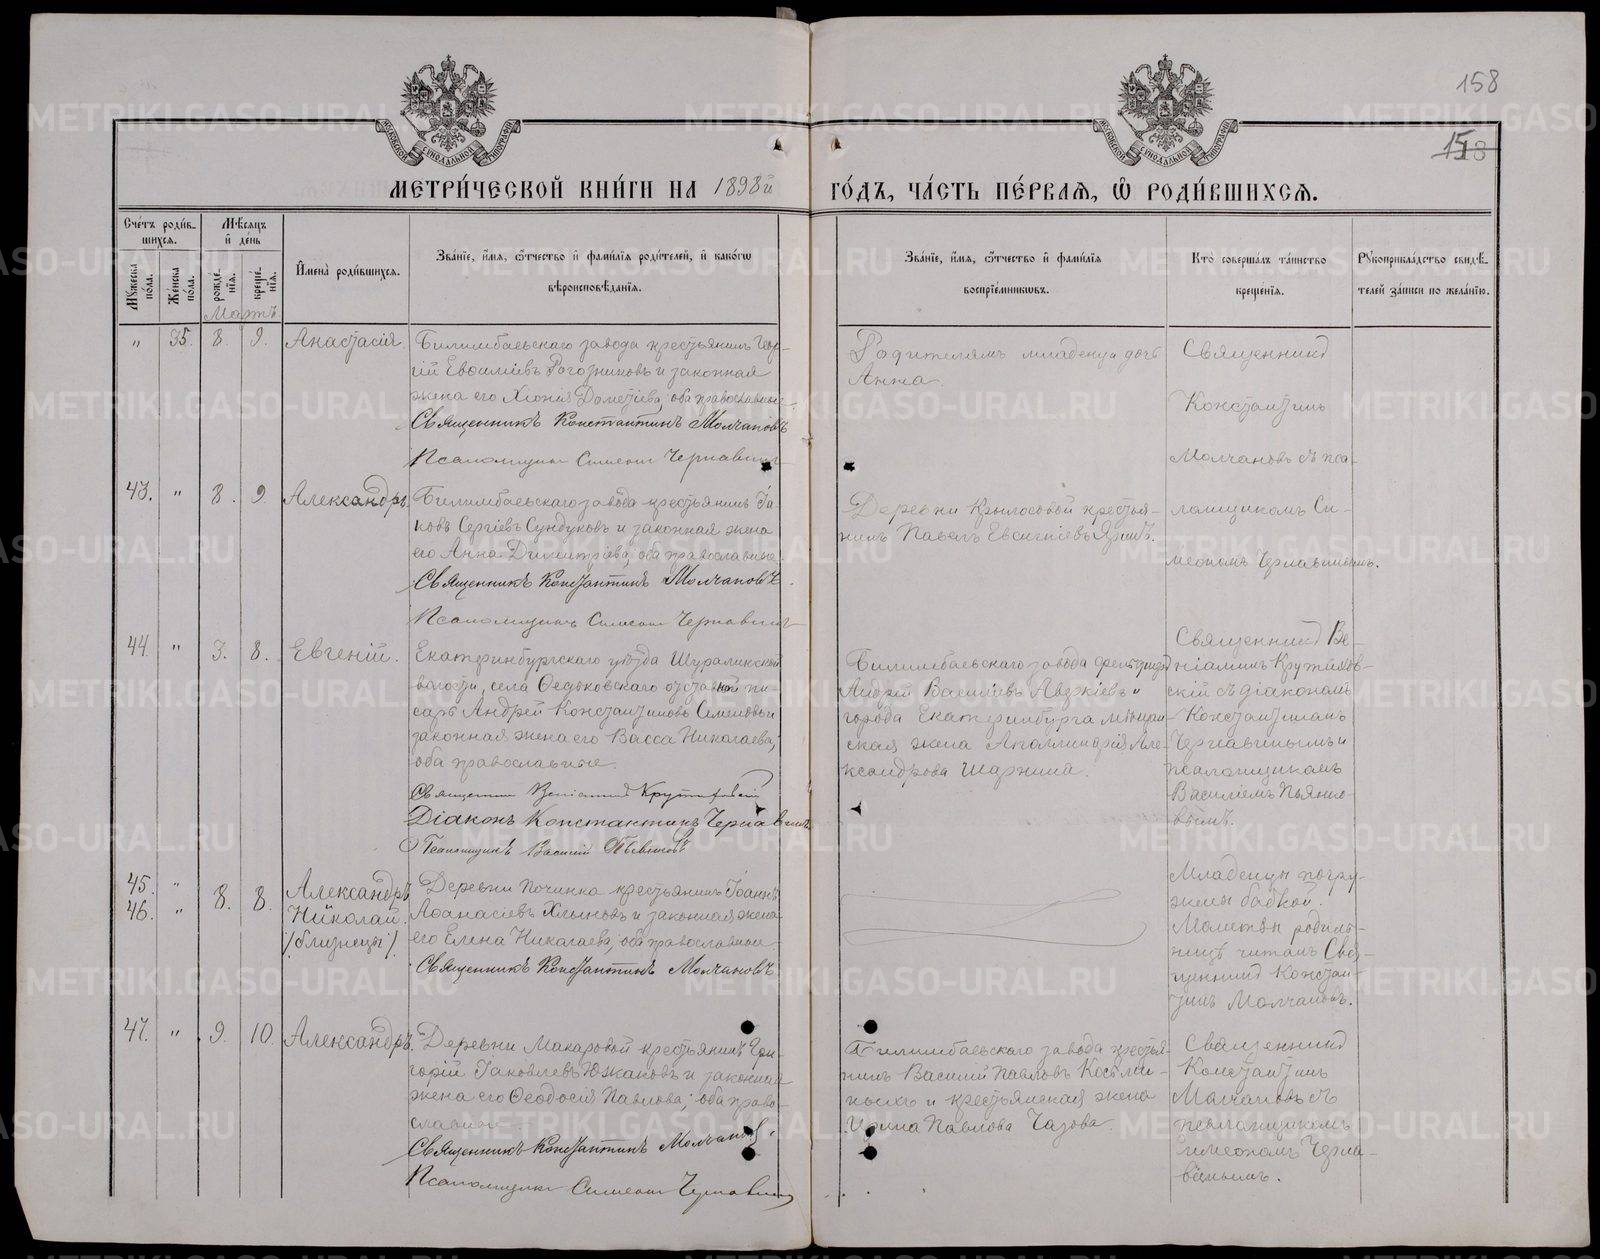 158
МЕТРИ́ЧЕСКОЙ КНИ́ГИ НА 1898й ГО́ДЪ, ЧА́СТЬ ПЕ́РВАЯ, Ѽ РОДИ́ВШИХСЯ.
Сче́тъ роди́в-
шихся.
Мꙋжеска по́ла.
Же́нска по́ла.
Мѣ́сяцъ
и де́нь
рожде́нїя.
креще́нїя.
Мартъ
И҆мена̀ роди́вшихся.
Зва́нїе, и҆́мя, ѻ҆́тчество и҆ фами́лїя роди́телей, и҆ како́гѡ
вѣроисповѣ́данїя.
Зва́нїе, и҆́мя, ѻ҆́тчество и҆ фами́лїя
воспрїе́мникѡвъ.
Кто̀ соверша́лъ та́инство
креще́нїя.
Рꙋкоприкла́дство свидѣ́-
телей за́писи по жела́нїю.
" 35. 8. 9. Анастасія.
Билимбаевскаго завода крестьянинъ Геор-
гій Евѳиміевъ Рогозниковъ и законная
жена его Хіонія Дометіева, оба православные.
Священникъ Константинъ Молчановъ
Псаломщикъ Симеонъ Чернавинъ
Родителямъ младенца дочь
Анна.
Священникъ
Константинъ
Молчановъ съ пса-
ломщикомъ Си-
меономъ Чернавинымъ.
43. " 8. 9. Александръ.
Билимбаевскаго завода крестьянинъ Іа-
ковъ Сергіевъ Сундуковъ и законная жена
его Анна Димитріева, оба православные.
Священникъ Константинъ Молчановъ.
Псаломщикъ Симеонъ Чернавинъ
Деревни Крылосовой крестья-
нинъ Павелъ Евсигніевъ Яринъ.
44. " 3. 8. Евгеній.
Екатеринбургскаго уѣзда Шуралинской
волости, села Ѳедьковскаго отставной пи-
сарь Андрей Константиновъ Семеновъ и
законная жена его Васса Николаева,
оба православные.
Священникъ Веніаминъ
Діаконъ Константинъ Чернавинъ
Псаломщикъ Василій Пьянковъ
Билимбаевскаго завода фельдшеръ
Андрей Василіевъ Аверкіевъ и
города Екатеринбурга мѣщан-
ская жена Аполлинарія Але-
ксандрова
Священникъ Ве-
ніаминъ
скій съ діакономъ
Константиномъ
Чернавинымъ и
псаломщикомъ
Василіемъ Пьянко-
вымъ.
45. " 8. 8. Александръ
46. " Николай.
/близнецы/
Деревни Починка крестьянинъ Іоаннъ
Аѳанасіевъ Хлыновъ и законная жена
его Елена Николаева, оба православные.
Священникъ Константинъ Молчановъ
Младенцы погру-
жены бабкой.
Молитвы родиль-
ницѣ читалъ Свя-
щенникъ Констан-
тинъ Молчановъ.
47. " 9. 10. Александръ.
Деревни Макаровой крестьянинъ Гри-
горій Іаковлевъ Южаковъ и законная
жена его Ѳеодосія Павлова, оба право-
славные
Священникъ Константинъ Молчановъ.
Псаломщикъ Симеонъ Чернавинъ
Билимбаевскаго завода крестья-
нинъ Василій Павловъ Косьми-
ныхъ и крестьянская жена
Ирина Павлова Чазова.
Священникъ
Константинъ
Молчановъ съ
псаломщикомъ
Симеономъ Черна-
винымъ.
METRIKI.GASO-URAL.RU